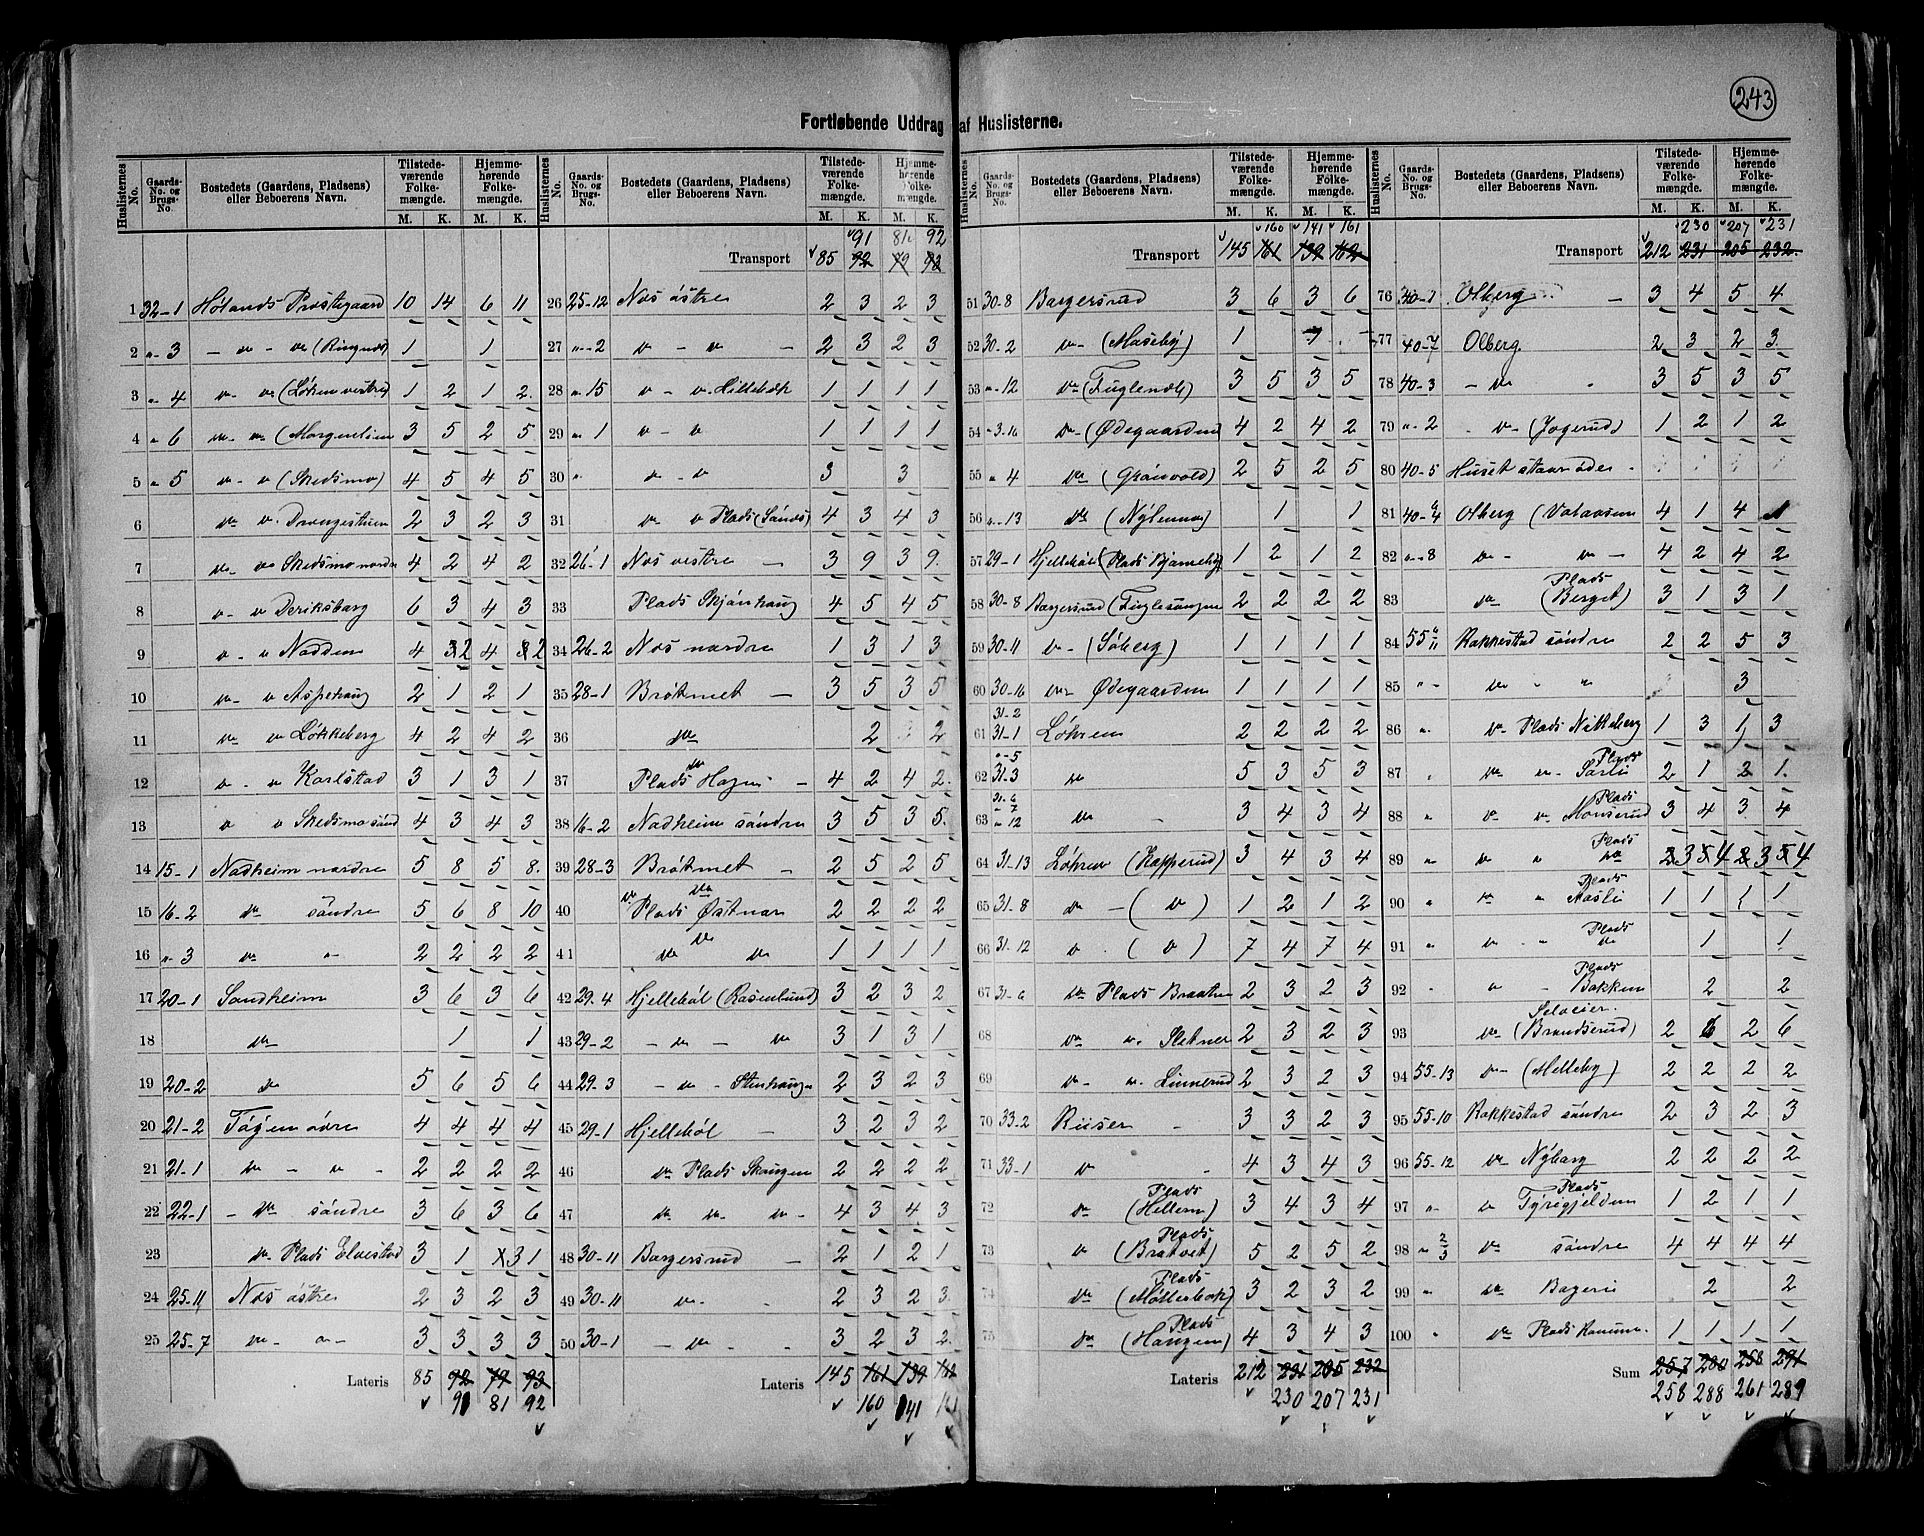 243
Fortløbende Uddrag af Huslisterne.
Huslisternes No. Gaards-No. og Brugs-No. Bostedets (Gaardens, Pladsens) eller Beboerens Navn. Tilstedeværende Folkemængde. M. K. Hjemmehørende Folkemængde. M. K.
91 81 92
Transport 85 92 79 93
1 32-1 Hølands Præstegaard 10 14 6 11
2 " 3 - " - " (Ringnes) 1 1
3 " 4 " - " (Løken vestre) 1 2 1 2
4 " 6 " - " (Morgenlien 3 5 2 5
5 " 5 " - " (Skedsmo) 4 5 4 5
6 do " Drengestuen 2 3 2 3
7 do " Skedsmo nordre 4 2 4 2
8 " - " Deriksberg 6 3 4 3
9 " - " Nadden 4 2 4 2
10 do " Aspehaug 2 1 2 1
11 do " Løkkeberg 4 2 4 2
12 " - " Karlstad 3 1 3 1
13 " " Skedsmo sønd 4 3 4 3
14 15-1 Nadheim nordre 5 8 5 8
15 16-2 do søndre 5 6 8 10
16 " 3 do " - 2 2 2 2
17 20-1 Sandheim 3 6 3 6
18 do 1 1
19 20-2 do 5 6 5 6
20 21-2 Tøgen øvre 4 4 4 4
21 21-1 do - " - 2 2 2 2
22 22-1 - do søndre 3 6 3 6
23 do Plads Elvestad 3 1 3 1
24 25-11 Nes østre 2 3 2 3
25 25-7 do - " - 3 3 3 3
Lateris 85 92 79 93
91 81 92
26 25-12 Nes østre 2 3 2 3
27 " - 2 " - " - 2 3 2 3
28 " 15 " - " Hillebæk 1 1 1 1
29 " 1 " - " 1 1 1 1
30 " do - " 3 3
31 do " Plads (Sønds) 4 3 4 3
32 26-1 Nes vestre 3 9 3 9
33 Plads Skjønhaug 4 5 4 5
34 26-2 Nes nordre 1 3 1 3
35 28-1 Bråtmet - 3 5 3 5
36 do 2 2
37 Plads do Hagen - 4 2 4 2
38 16-2 Nadheim søndre 3 5 3 5
39 28-3 Bråtmet - 2 5 2 5
40 do Plads do Østnar 2 2 2 2
41 do do do 1 1 1 1
42 29-4 Hjellebøl (Rosenlund) 3 2 3 2
43 29-2 - do - do 3 1 3 1
44 29-3 - do - Stenhaugen 2 3 2 3
45 29-1 Hjellebøl 3 2 3 2
46 do Plads Skaugen 2 2 2 2
47 do do " - 4 3 4 3
48 30-11 Bergersrud 2 1 2 1
49 30-11 do - 2 3 2 3
50 30-1 do 3 2 3 2
Lateris 145 161 139 162
160 141 161
160 141 161
Transport 145 161 139 162
51 30-8 Bergersrud 3 6 3 6
52 30-2 do - (Moseby) 1
53 " - 12 do (Fuglenæb) 3 5 3 5
54 " 3.16 do - (Ødegaarden 4 2 4 2
55 " 4 do (Grønvold) 2 5 2 5
56 " - 13 do (Nylennes) 1 1
57 29-1 Hjellebøl (Plads Bjørneby) 1 2 1 2
58 30-8 Bergersrud (Fuglesangen 2 2 2 2
59 30-11 do - (Søberg) 1 1 1 1
60 30-16 do - Ødegaarden 1 1 1 1
61 31-2 31-1 Løkren 2 2 2 2
62 " - 5 31-3 do 5 3 5 3
63 31-6 " 7 " 12 do 3 4 3 4
64 31-13 Løkren (Kopperud) 3 4 3 4
65 31-8 do - ( do ) 1 2 1 2
66 31-12 do ( do ) 7 4 7 4
67 31-6 do Plads Braaten 2 3 2 3
68 do " Sletner 2 3 2 3
69 do - " Linnerud 2 3 2 3
70 33-2 Riiser 3 3 2 3
71 33-1 do 4 3 4 3
72 do Plads (Hellern) 3 4 3 4
73 do Plads (Bratvet) 5 2 5 2
74 do Plads (Møllerbæk) 3 2 3 2
75 do Plads (Haugen) 4 3 4 3
Lateris 212 231 205 232
230 207 231
230 207 231
Transport 212 231 205 232
76 40-1 Olberg 3 4 5 4
77 40-7 Olberg 2 3 2 3
78 40-3 - do " 3 5 3 5
79 " - 2 do - (Jogerud) 1 2 1 2
80 40-5 Huset staar øde
81 40-4 Olberg (Vataasen 4 1 4 1
82 " - 8 do - do - 4 2 4 2
83 do Plads (Berget) 3 1 3 1
84 55 11 Rakkestad søndre 2 2 5 3
85 " - do - " 3
86 " do Plads Natteberg 1 3 1 3
87 " do " Plads Sarli 2 1 2 1
88 " do " Plads Monserud 3 4 3 4
89 " do " Plads do 3 4 3 4
90 " do " Plads Aasli 1 1 1 1
91 " do - " Plads do 1 1
92 " do - Plads Bakken 2 2
93 do Selveier (Brandserud) 2 6 2 6
94 55-13 do - (Melleby) 2 2 2 2
95 55-10 Rakkestad søndre 2 3 2 3
96 55-12 do Nyberg 2 2 2 2
97 " do Plads Tyrigjelden 1 2 1 1
98 " 2 3 do søndre 4 4 4 4
99 " do Bageri 2 2
100 " do Plads 1 1 1 1
Sum 257 280 258 291
258 288 261 289